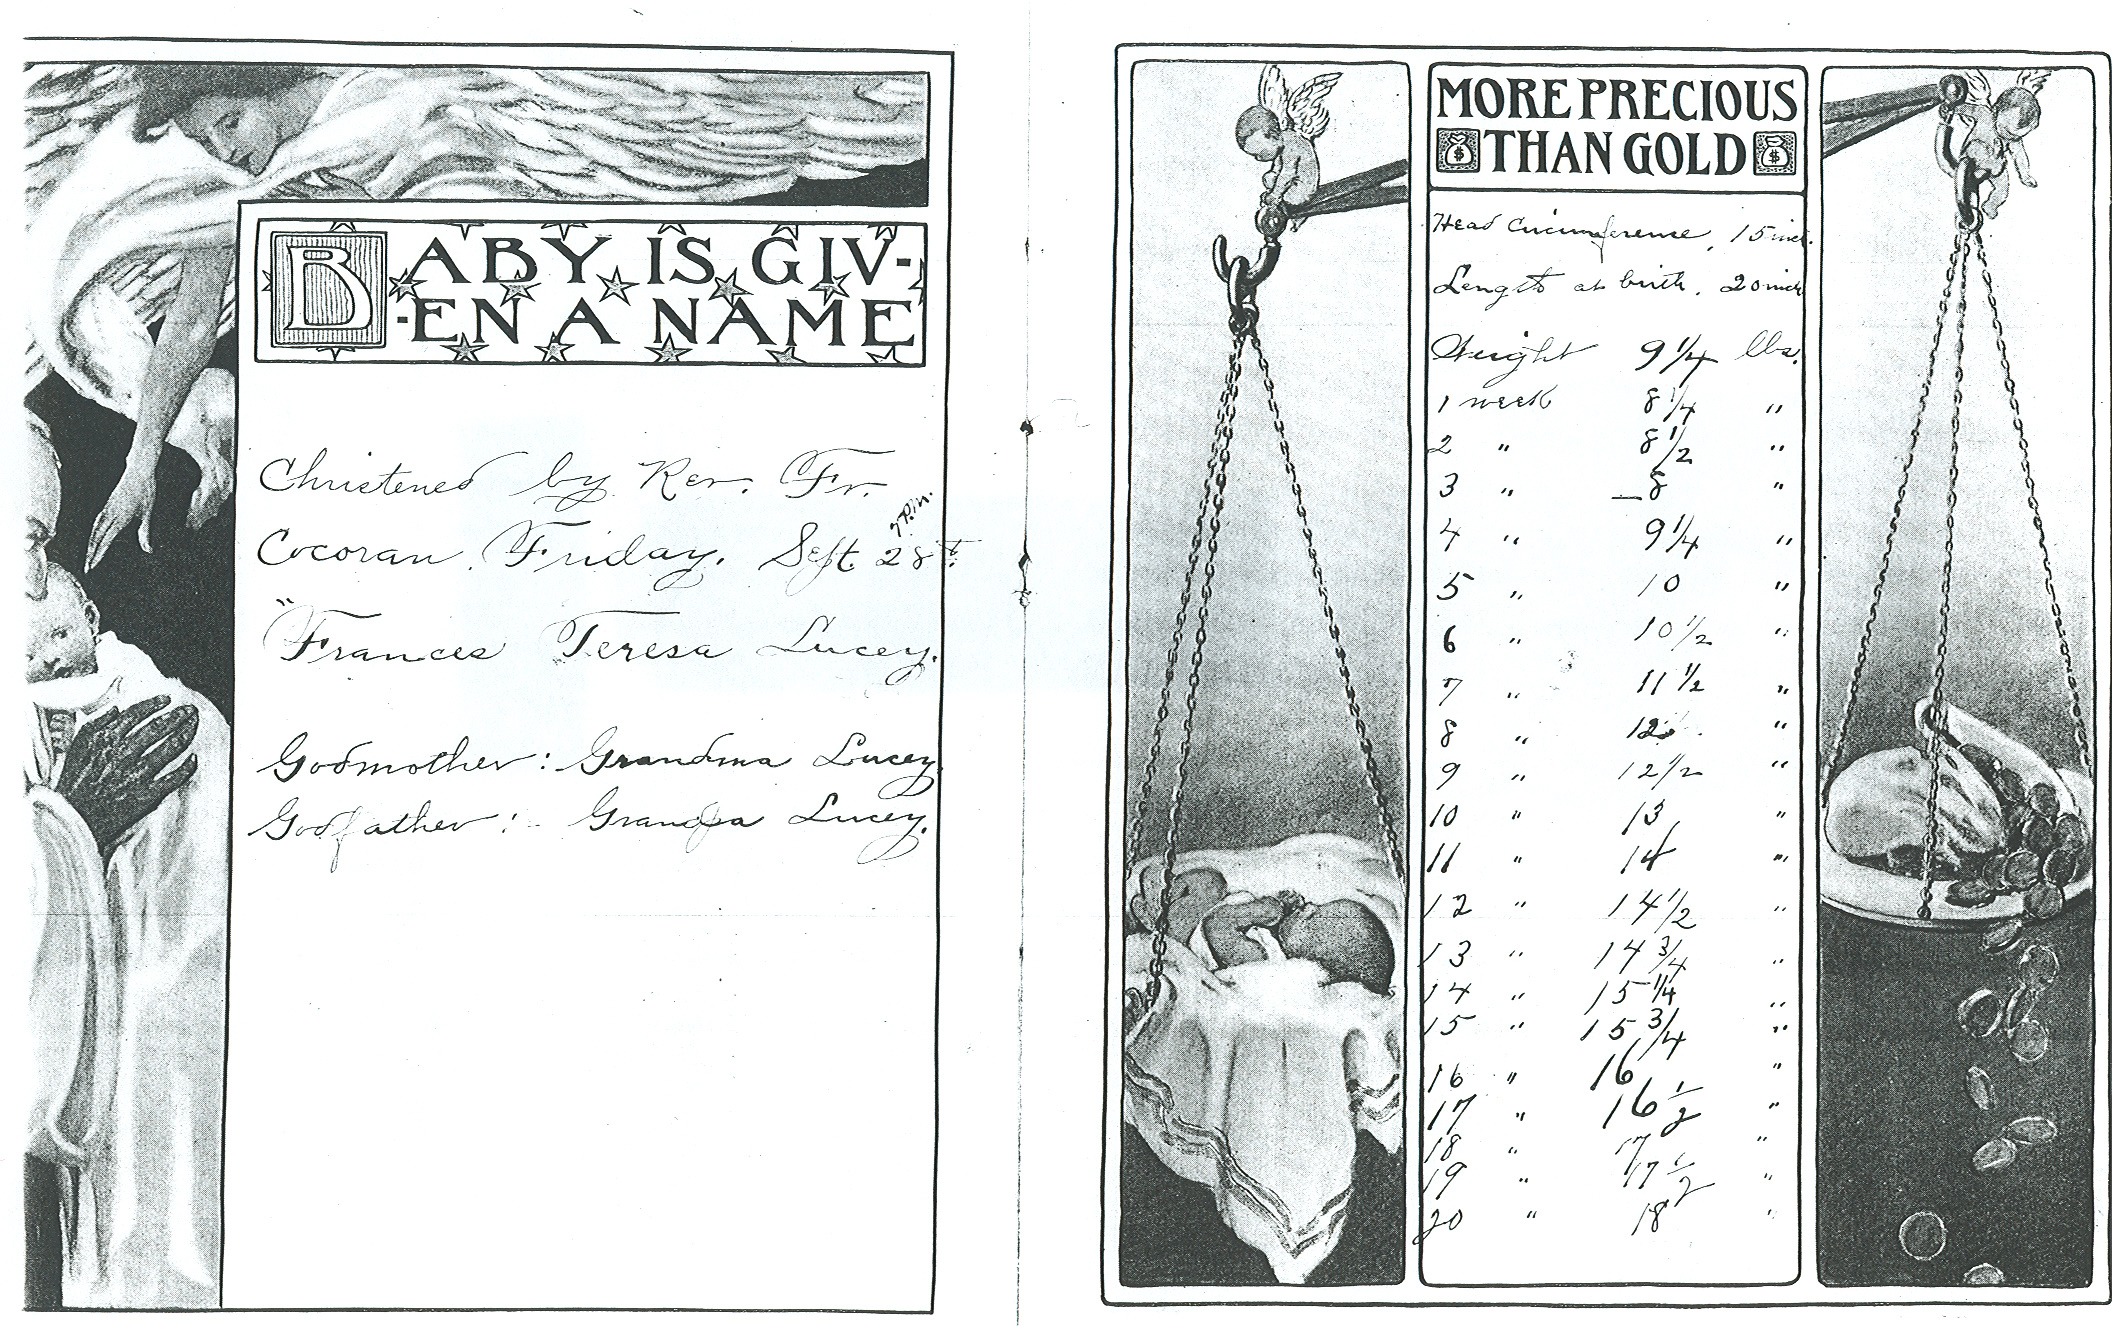 BABY IS GIV-
-EN A NAME
Christened by Rev. Fr.
7 P.m.
Cocoran, Friday, Sept. 28th.
"Frances Teresa Lucey.
Godmother: Grandma Lucey.
Godfather:- Grandpa Lucey.
MORE PRECIOUS
$ THAN GOLD $
Head Circumference, 15 inch.
Length at birth, 20 inch
Weight 9 1/4 lbs.
1 week 8 1/4 "
2 " 8 1/2 "
3 " 8 "
4 " 9 1/4 "
5 " 10 "
6 " 10 1/2 "
7 " 11 1/2 "
8 " 12 "
9 " 12 1/2 "
10 " 13 "
11 " 14 "
12 " 14 1/2 "
13 " 14 3/4 "
14 " 15 1/4 "
15 " 15 3/4 "
16 " 16 "
17 " 16 1/2 "
18 " 17 "
19 " 17 1/2 "
20 " 18 "